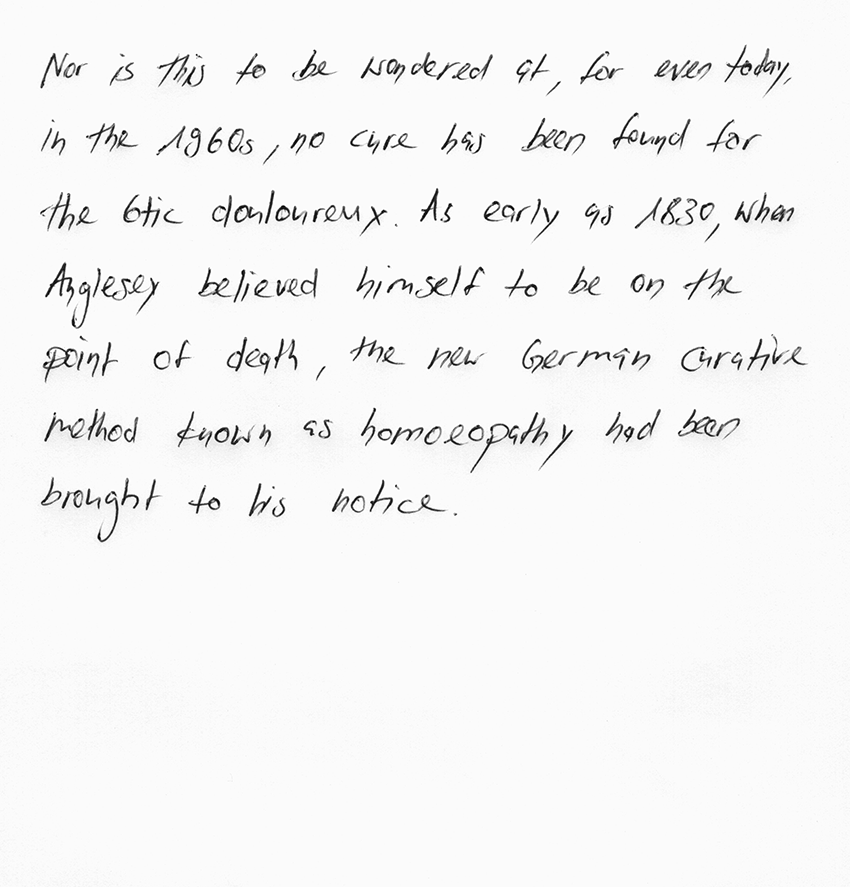 Nor is this to be wondered at, for even today,
in the 1960s, no cure has been found for
the 6tic douloureux. As early as 1830, when
Anglesey believed himself to be on the
point of death, the new German curative
method known as homoeopathy had been
brought to his notice.